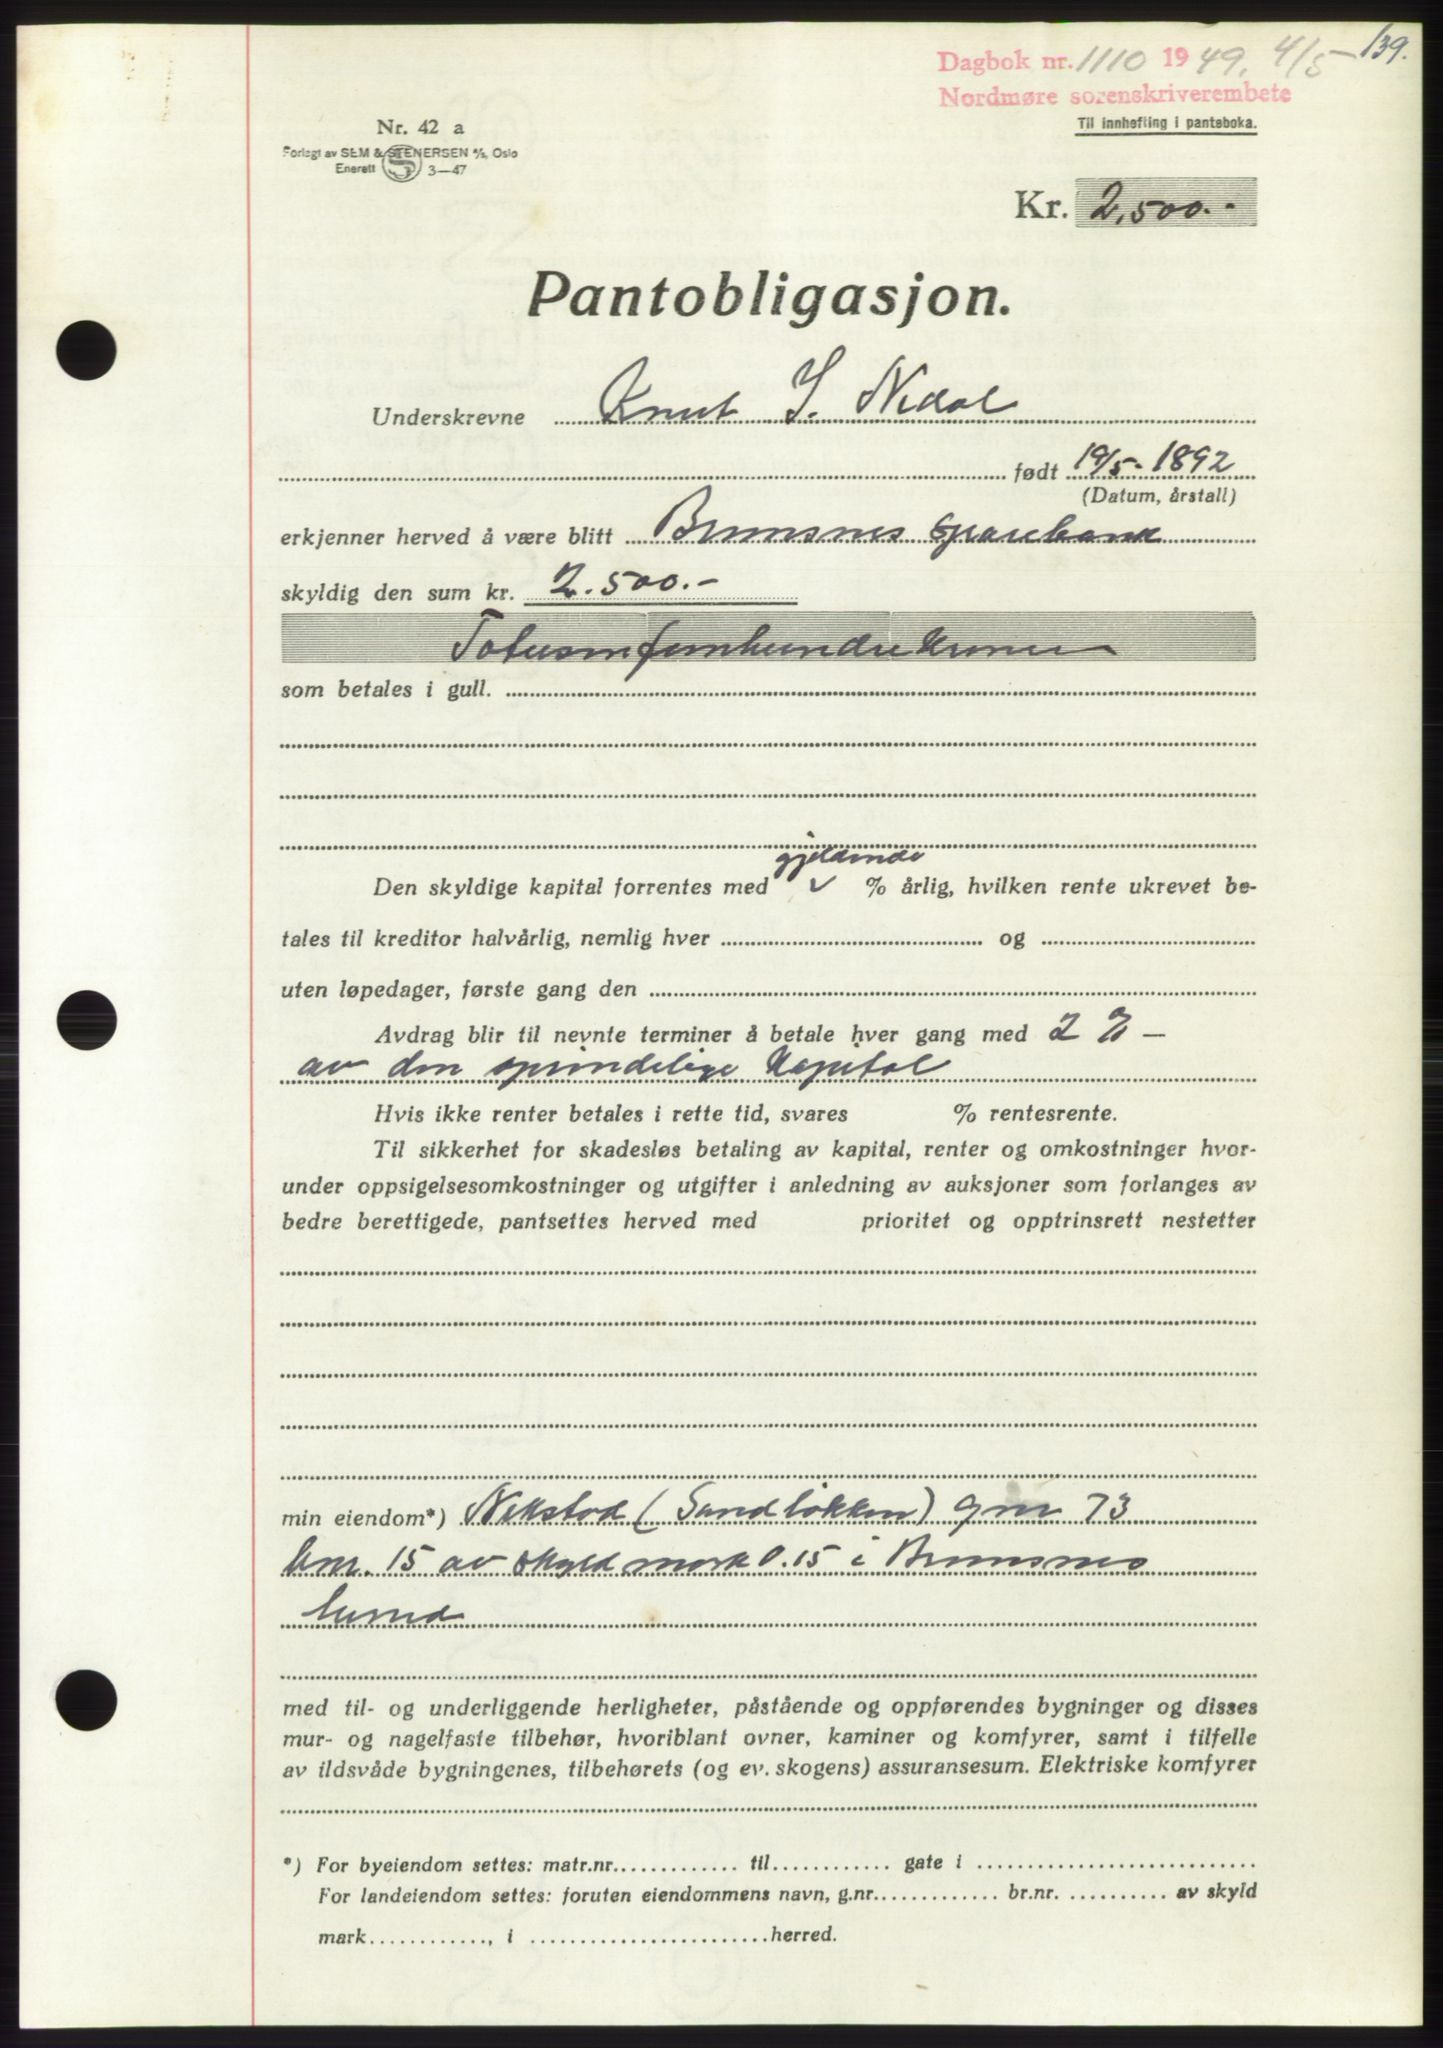 139.
Dagbok nr. 1110 1949. 4/5
Nordmøre sorenskriverembete
Til innhefting i panteboka.
Nr. 42 a
Forlagt av SEM & STENERSEN A/S, Oslo
Enerett S 3—47
Kr. 2.500.-
Pantobligasjon.
Underskrevne Knut S. Nedal
født 19/5-1892
(Datum, årstall)
erkjenner herved å være blitt Bremsnes Sparebank
skyldig den sum kr. 2.500.-
Totusenfemhundrekroner
som betales i gull.
gjeldende
Den skyldige kapital forrentes med % årlig, hvilken rente ukrevet be-
tales til kreditor halvårlig, nemlig hver og
uten løpedager, første gang den
Avdrag blir til nevnte terminer å betale hver gang med 2 % —
av den oprindelige Kapital
Hvis ikke renter betales i rette tid, svares % rentesrente.
Til sikkerhet for skadesløs betaling av kapital, renter og omkostninger hvor-
under oppsigelsesomkostninger og utgifter i anledning av auksjoner som forlanges av
bedre berettigede, pantsettes herved med prioritet og opptrinsrett nestetter
min eiendom*) Nekstad (Sandløkken) gnr 73
bnr. 15 av skyld mark 0.15 i Bremsnes
herred
med til- og underliggende herligheter, påstående og oppførendes bygninger og disses
mur- og nagelfaste tilbehør, hvoriblant ovner, kaminer og komfyrer, samt i tilfelle
av ildsvåde bygningenes, tilbehørets (og ev. skogens) assuransesum. Elektriske komfyrer
*) For byeiendom settes: matr.nr. til gate i
For landeiendom settes: foruten eiendommens navn, g.nr. br.nr. av skyld
mark , i herred.